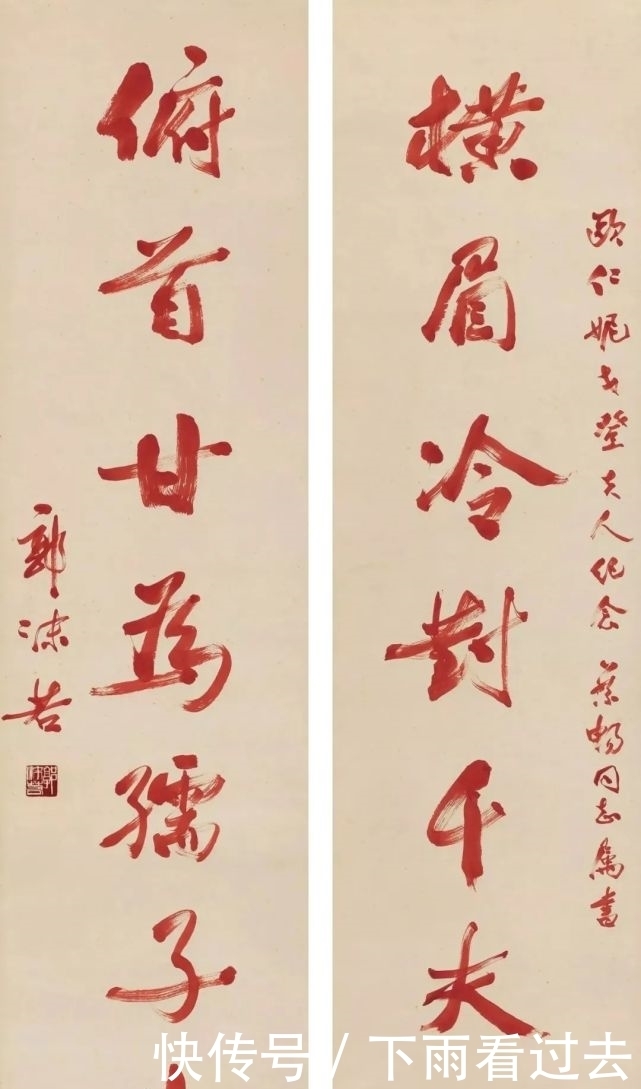 歐仁妮戈登夫人紀念 蔡暢同志屬書
橫眉冷對千夫
俯首甘為孺子
郭沫若
快传号 / 下雨看过去